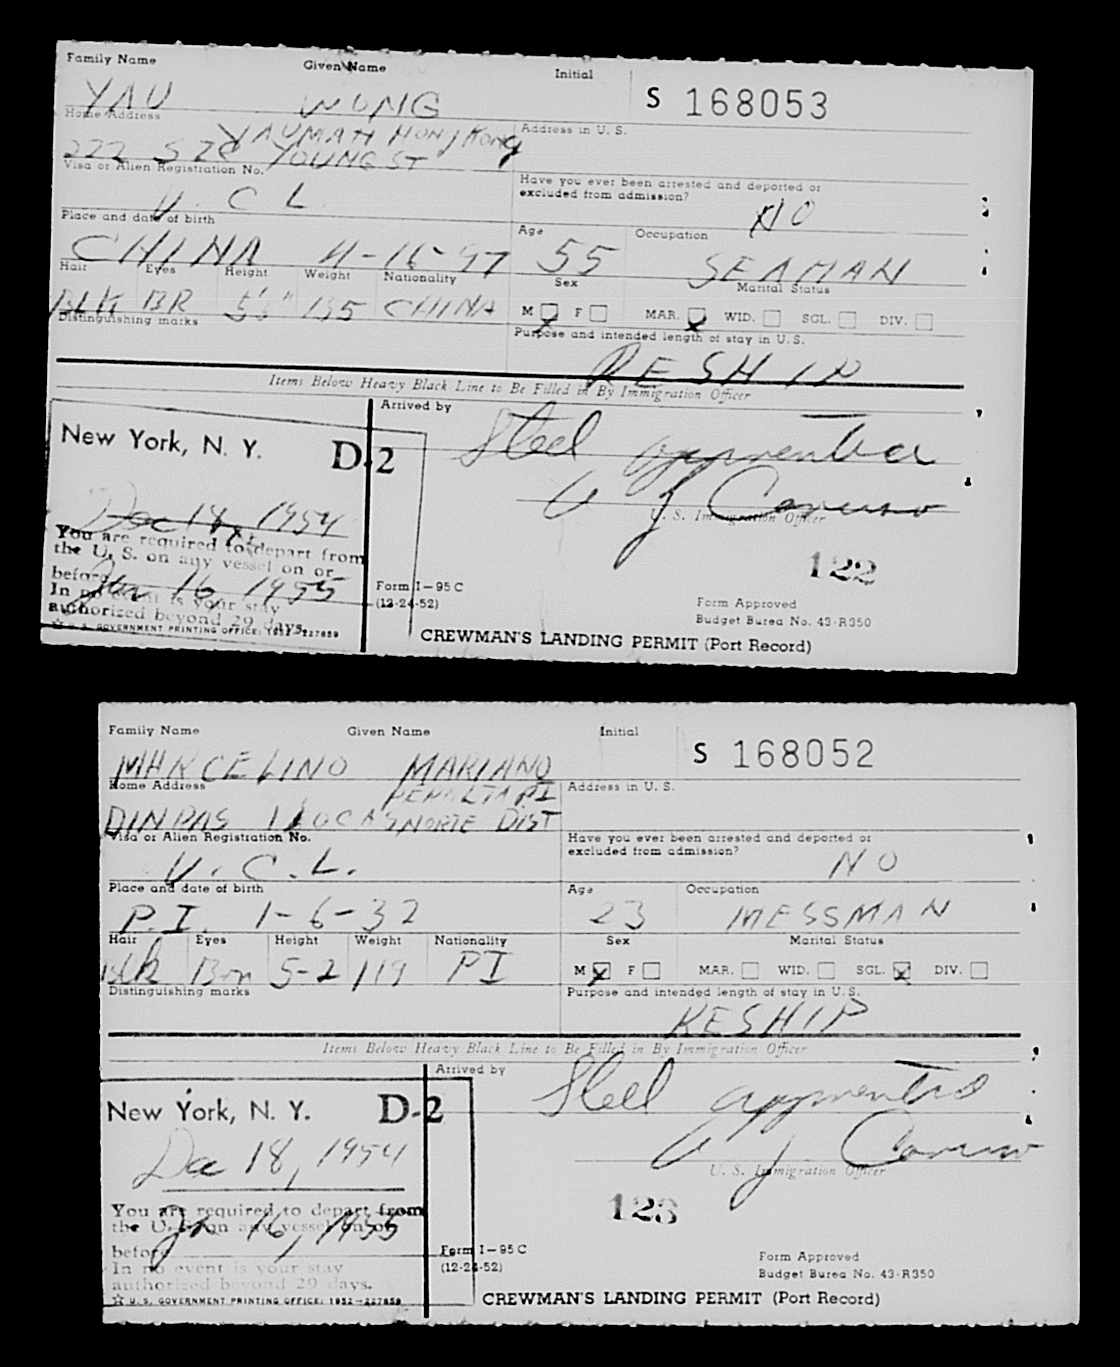 Family Name Given Name Initial
S 168053
YAU WUNG
Home Address
Address in U. S.
YAUMATI HONG KONG
222 YOUNG ST
Visa or Alien Registration No.
Have you ever been arrested and deported or
excluded from admission?
U. C L.
NO
Place and date of birth
Age Occupation
CHINA 11-16-97 55 SEAMAN
Hair Eyes Height Weight Nationality
Sex Marital Status
BLK BR 5'5" 135 CHINA
M F MAR. WID. SGL. DIV.
Distinguishing marks
Purpose and intended length of stay in U. S.
RESHIP
Items Below Heavy Black Line to Be Filled in By Immigration Officer
Arrived by
New York, N. Y. D-2
Steel apprentice
Dec 18, 1954
V J Caruso
U. S. Immigration Officer
You are required to depart from
the U. S. on any vessel on or
before Jan 16, 1955
In no event is your stay
authorized beyond 29 days.
☆ U.S. GOVERNMENT PRINTING OFFICE: 1952—227859
122
Form I-95 C
(12-24-52)
Form Approved
Budget Burea No. 43-R350
CREWMAN'S LANDING PERMIT (Port Record)
Family Name Given Name Initial
S 168052
MARCELINO MARIANO
Home Address
Address in U. S.
PERALTA PI
DINPAS ILOCAS NORTE DIST
Visa or Alien Registration No.
Have you ever been arrested and deported or
excluded from admission?
U. C. L.
NO
Place and date of birth
Age Occupation
P.I. 1-6-32 23 MESSMAN
Hair Eyes Height Weight Nationality
Sex Marital Status
blk Brn 5-2 119 PI
M F MAR. WID. SGL. DIV.
Distinguishing marks
Purpose and intended length of stay in U. S.
RESHIP
Items Below Heavy Black Line to Be Filled in By Immigration Officer
Arrived by
New York, N. Y. D-2
Steel apprentice
Dec 18, 1954
V J Caruso
U. S. Immigration Officer
You are required to depart from
the U. S. on any vessel on or
before Jan 16, 1955
In no event is your stay
authorized beyond 29 days.
☆ U.S. GOVERNMENT PRINTING OFFICE: 1952—227859
123
Form I-95 C
(12-24-52)
Form Approved
Budget Burea No. 43-R350
CREWMAN'S LANDING PERMIT (Port Record)